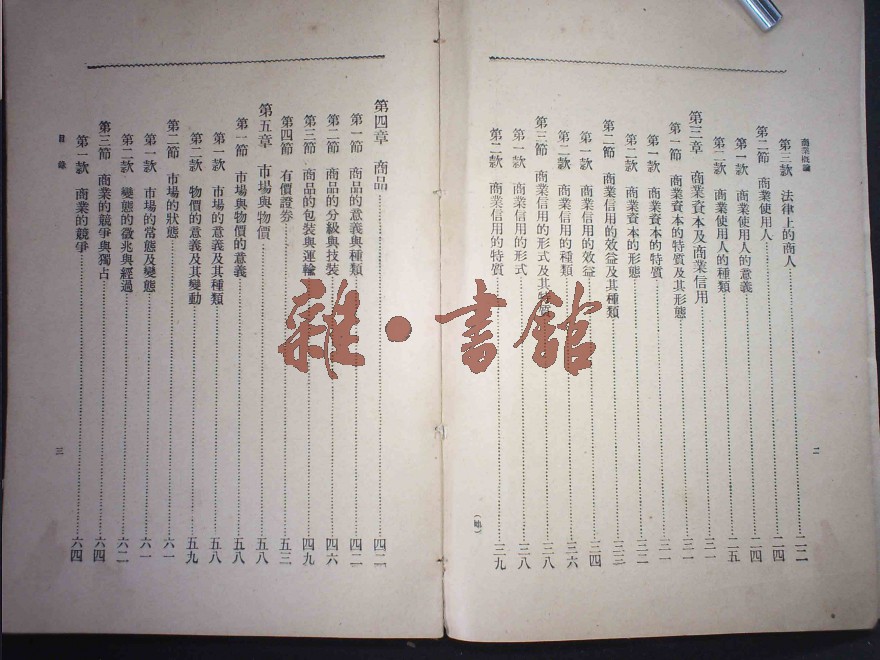 商業概論
第三款 法律上的商人 二二
第二節 商業使用人 二四
第一款 商業使用人的意義 二四
第二款 商業使用人的種類 二五
第三章 商業資本及商業信用 三一
第一節 商業資本的特質及其形態 三一
第一款 商業資本的特質 三一
第二款 商業資本的形態 三二
第二節 商業信用的效益及其種類 三三
第一款 商業信用的效益 三四
第二款 商業信用的種類 三六
第三節 商業信用的形式及其特質 三八
第一款 商業信用的形式 三八
第二款 商業信用的特質 三九
二
第四章 商品 四二
第一節 商品的意義與種類 四二
第二節 商品的分級與技裝 四六
第三節 商品的包裝與運輸 四九
第四節 有價證券 五三
第五章 市場與物價 五八
第一節 市場與物價的意義 五八
第一款 市場的意義及其種類 五八
第二款 物價的意義及其變動 五九
第二節 市場的狀態 六一
第一款 市場的常態及變態 六一
第二款 變態的徵兆與經過 六二
第三節 商業的競爭與獨占 六四
第一款 商業的競爭 六四
目錄
三
雜·書館